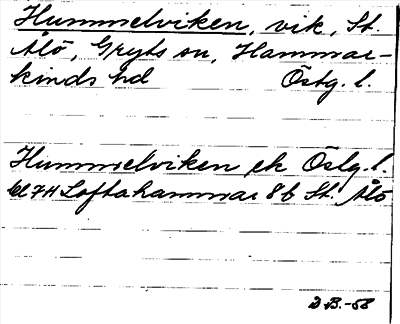 Hummelviken, vik, St.
Ålö, Gryts sn, Hammar-
kinds hd Östg. l.
Hummelviken ek Östg. l.
bl 7H Loftahammar 8b St. Ålö
D.B.-58